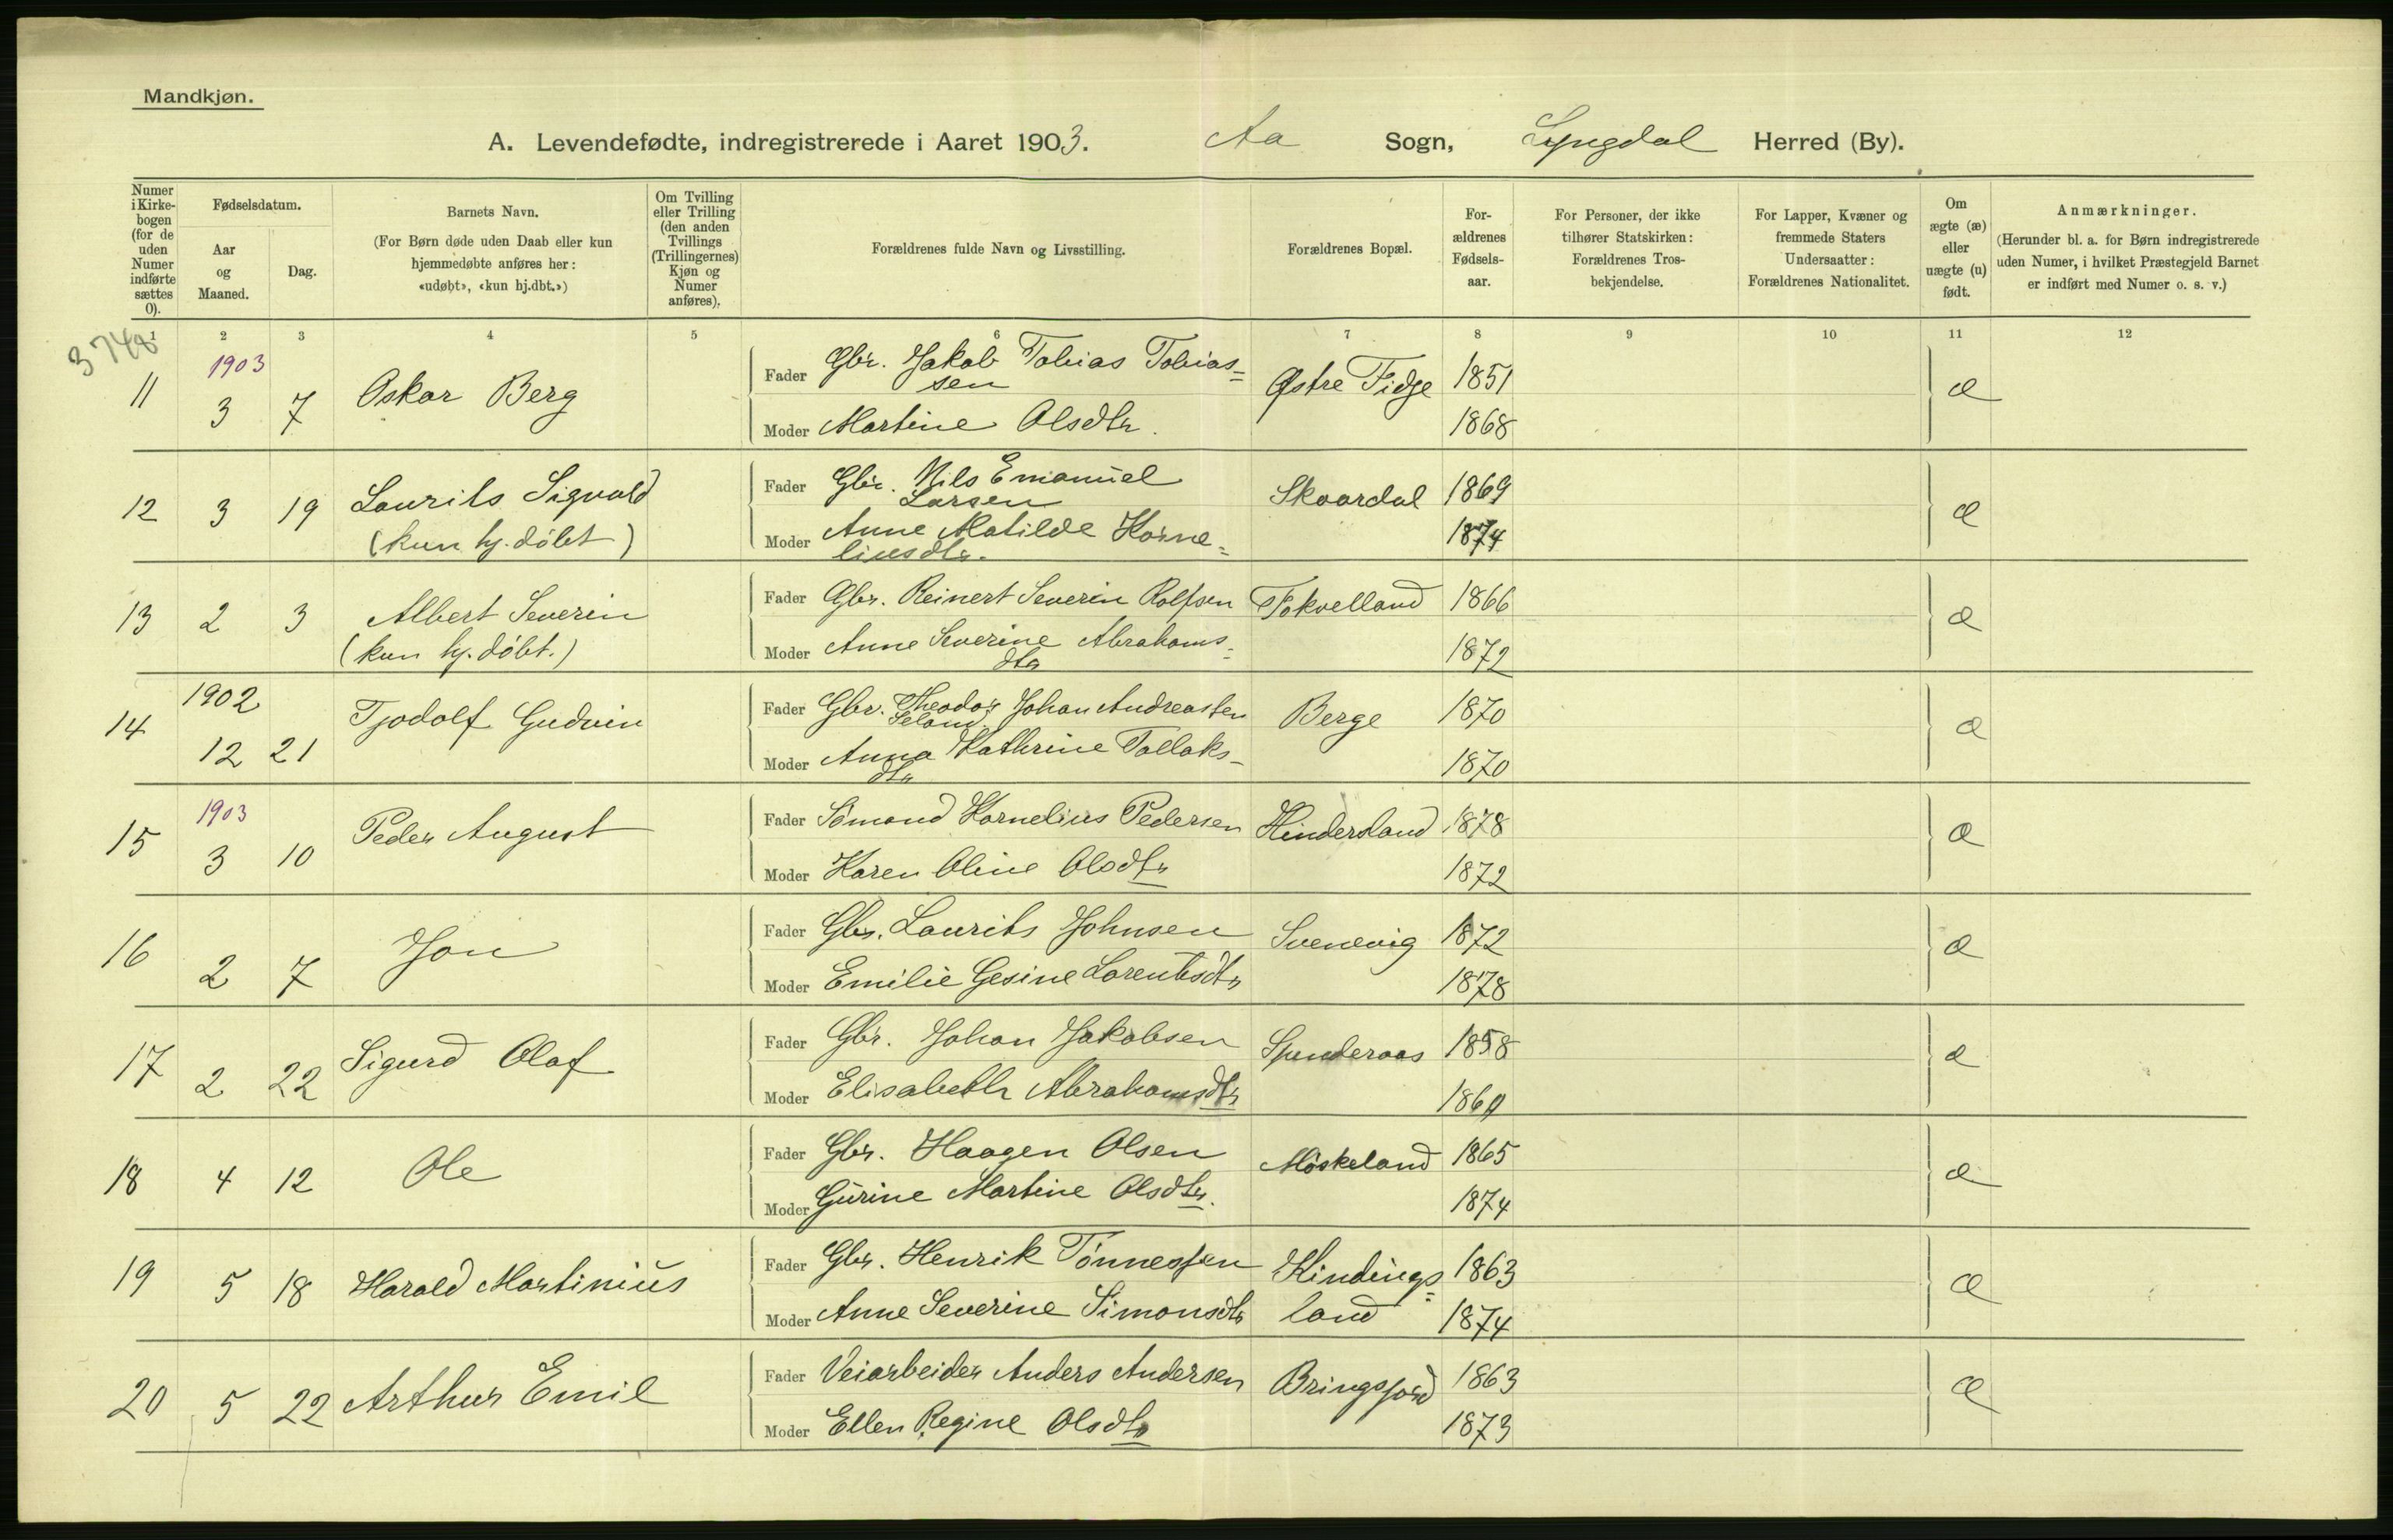 Mandkjøn.
A. Levendefødte, indregistrerede i Aaret 1903. Aa Sogn, Lyngdal Herred (By).
Numer i Kirkebogen (for de uden Numer indførte sættes 0).
Fødselsdatum.
Aar og Maaned.
Dag.
Barnets Navn.
(For Børn døde uden Daab eller kun hjemmedøbte anføres her: «udøbt», «kun hj.dbt.»)
Om Tvilling eller Trilling (den anden Tvillings (Trillingernes) Kjøn og Numer anføres).
Forældrenes fulde Navn og Livsstilling.
Forældrenes Bopæl.
Forældrenes Fødselsaar.
For Personer, der ikke tilhører Statskirken: Forældrenes Trosbekjendelse.
For Lapper, Kvæner og fremmede Staters Undersaatter: Forældrenes Nationalitet.
Om ægte (æ) eller uægte (u) født.
Anmærkninger.
(Herunder bl. a. for Børn indregistrerede uden Numer, i hvilket Præstegjeld Barnet er indført med Numer o. s. v.)
1 2 3 4 5 6 7 8 9 10 11 12
3748
1903
11 3 7 Oskar Berg Fader Gbr. Jakob Tobias Tobias=
sen Østre Fidje 1851 æ
Moder Martine Olsdtr. 1868
12 3 19 Laurits Sigvald Fader Gbr. Nils Emanuel
Larsen Skaardal 1869 æ
(kun hj. döbt) Moder Anne Matilde Korne=
liusdtr. 1874
13 2 3 Albert Severin Fader Gbr. Reinert Severin Rolfsen Fokvelland 1866 æ
(kun hj. döbt.) Moder Anne Severine Abrahams=
dtr 1872
1902
14 12 21 Tjodolf Gudvin Fader Gbr. Theodor Johan Andreassen
Seland Berge 1870 æ
Moder Anna Kathrine Tollaks-
dtr 1870
1903
15 3 10 Peder August Fader Sömand Kornelius Pedersen Hindersland 1878 æ
Moder Karen Oline Olsdtr 1872
16 2 7 Jon Fader Gbr. Laurits Johnsen Svenevig 1872 æ
Moder Emilie Gesine Larentsdtr 1878
17 2 22 Sigurd Olaf Fader Gbr. Johan Jakobsen 1858 æ
Moder Elisabeth Abrahamsdtr
18 4 12 Ole Fader Gbr. Haagen Olsen Möskeland 1865 æ
Moder Gurine Martine Olsdtr. 1874
19 5 18 Harald Martinius Fader Gbr. Henrik Tönnessen Kindings= 1863 æ
Moder Anne Severine Simonsdtr land 1874
20 5 22 Arthur Emil Fader Veiarbeider Anders Andersen Bringsjord 1863 æ
Moder Ellen Regine Olsdtr 1873